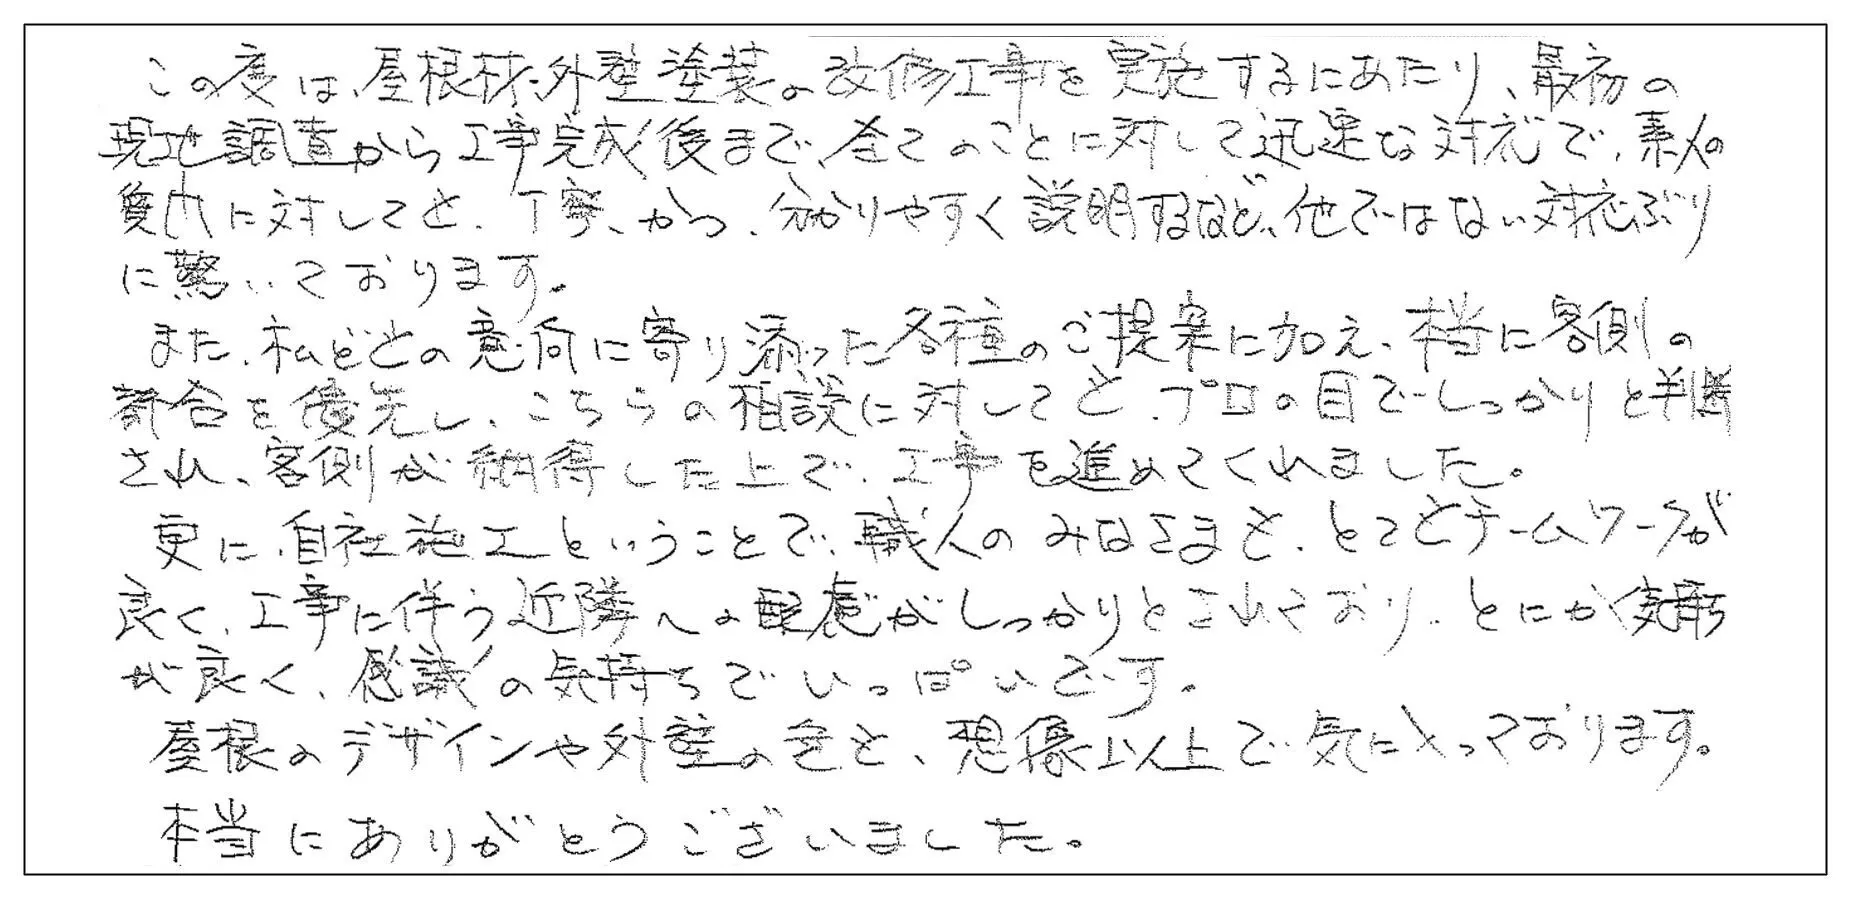 この度は、屋根材・外壁塗装の改修工事を実施するにあたり、最初の
現地調査から工事完成後まで、全てのことに対して迅速な対応で、素人の
質問に対しても、丁寧、かつ、分かりやすく説明するなど、他ではない対応ぶり
に驚いております。
また、私どもの意向に寄り添った各種のご提案に加え、本当に客側の
都合を優先し、こちらの相談に対しても、プロの目でしっかりと判断
され、客側が納得した上で、工事を進めてくれました。
更に、自社施工ということで、職人のみなさまも、とてもチームワークが
良く、工事に伴う近隣への配慮がしっかりとされており、とにかく気持
が良く、感謝の気持ちでいっぱいです。
屋根のデザインや外壁の色も、想像以上で気に入っております。
本当にありがとうございました。